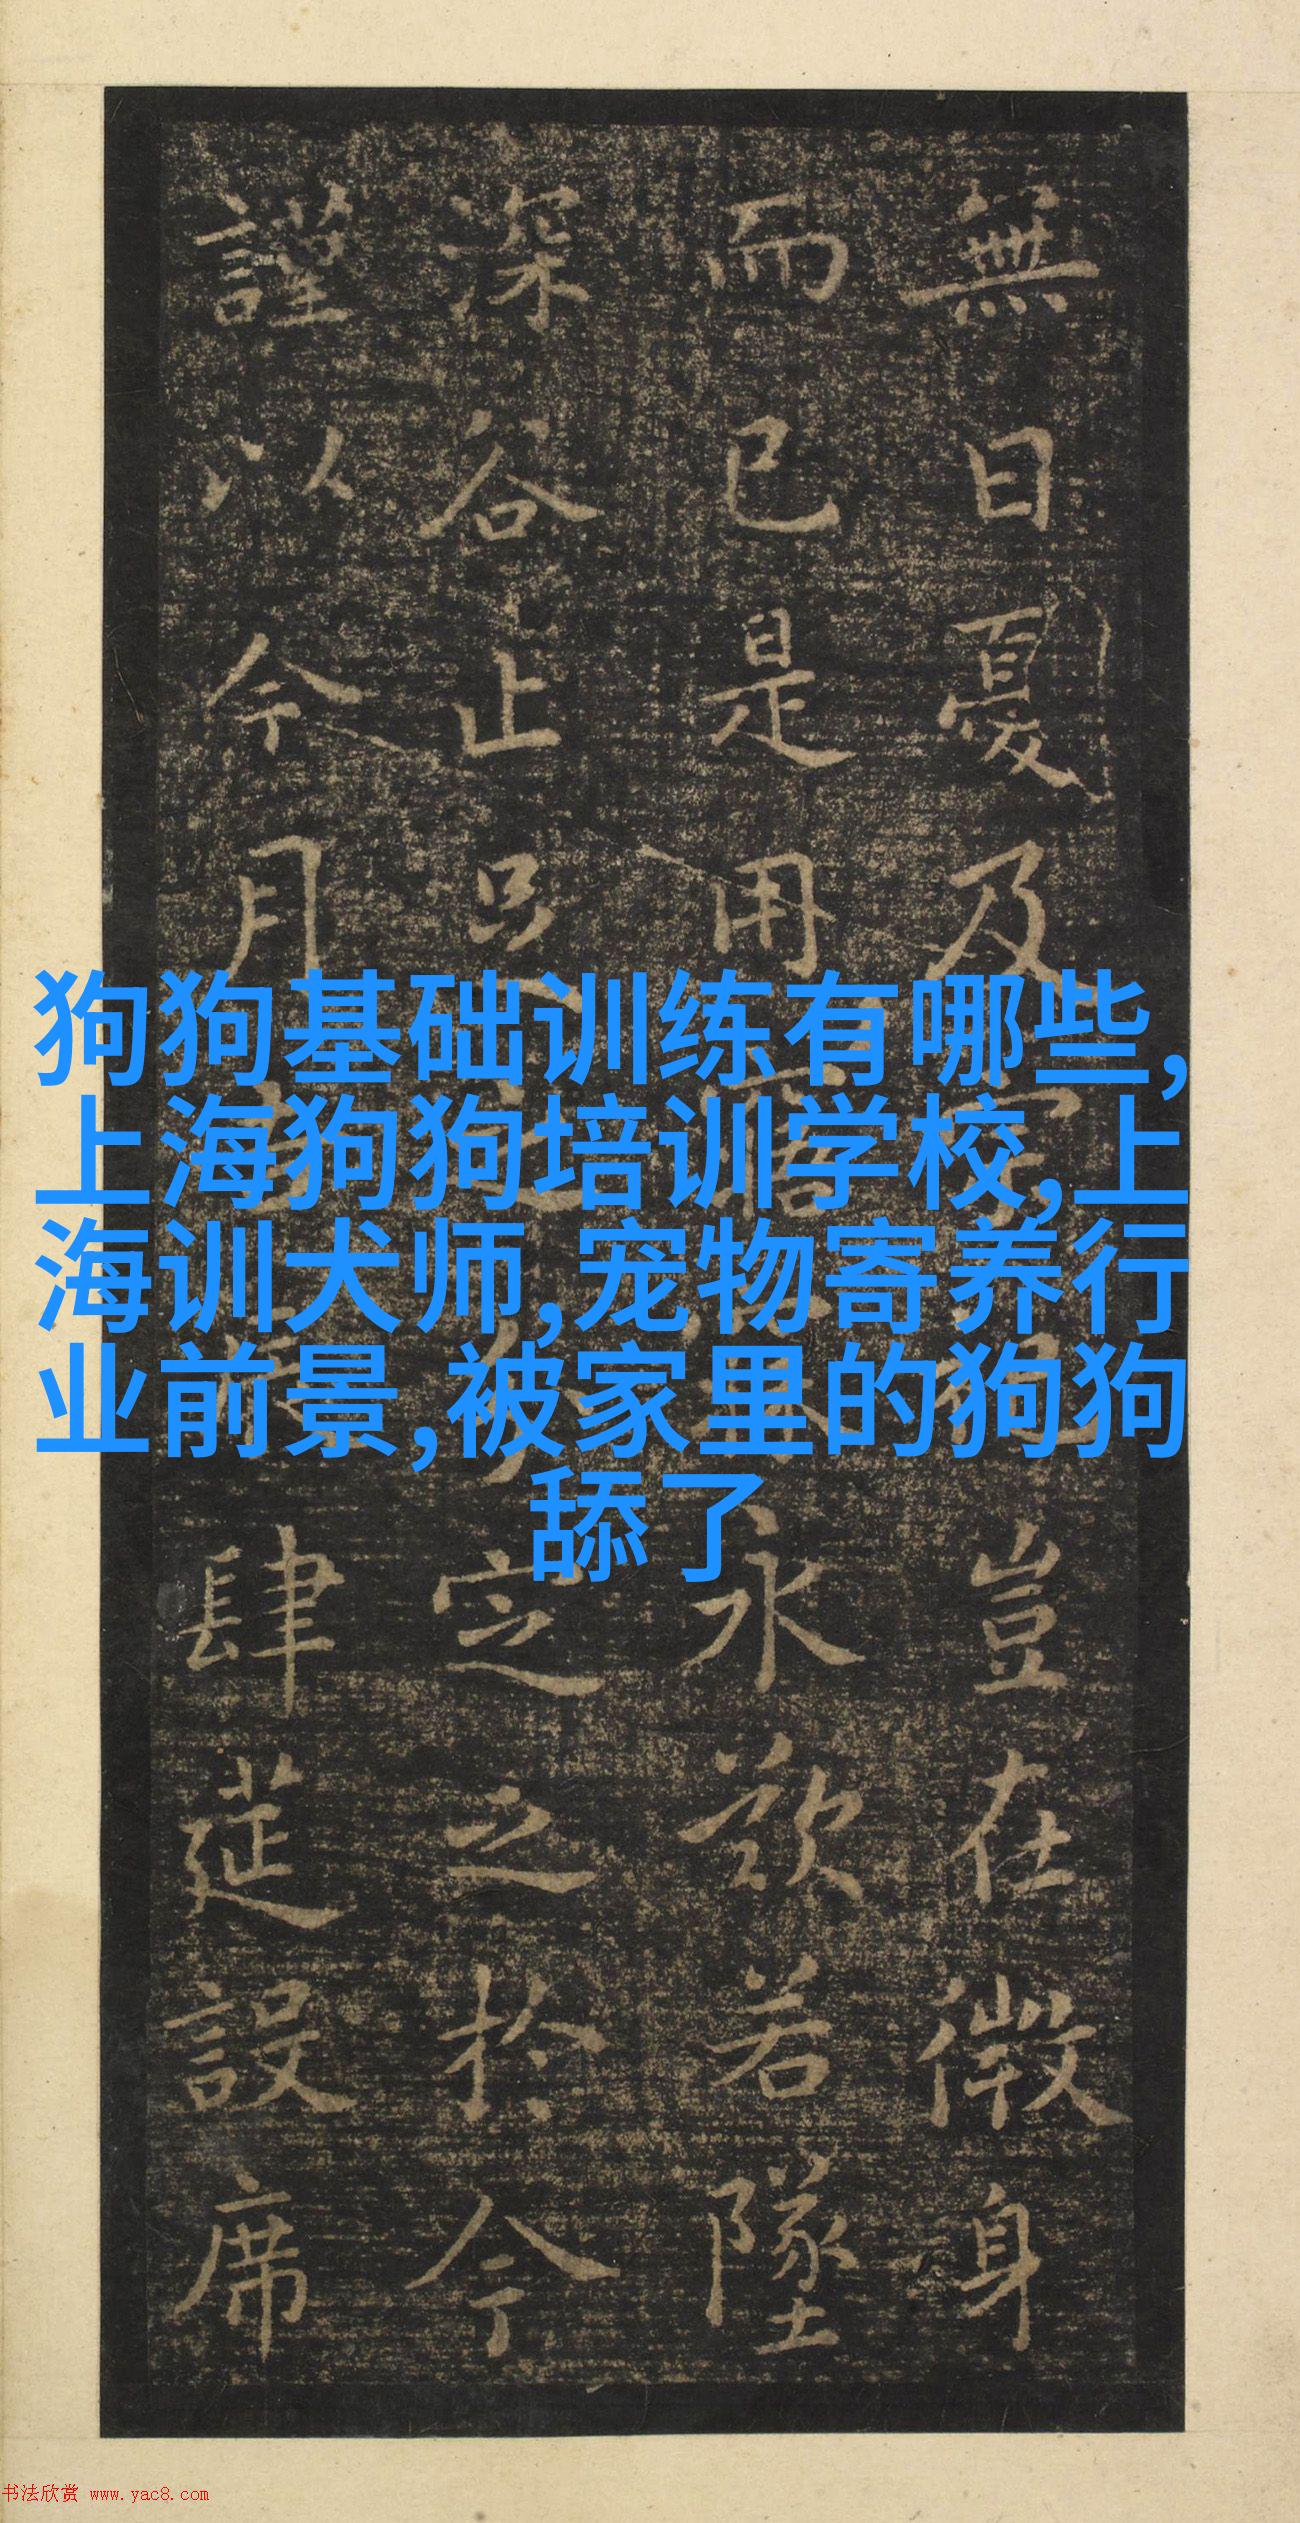 狗狗基础训练有哪些,
上海狗狗培训学校,上
海训犬师,宠物寄养行
业前景,被家里的狗狗
舔了
無日憂及豈在微身
而已是用永歎若墜
深谷止足定之於今
謹以今月肆筵設席
书法欣赏 www.yac8.com